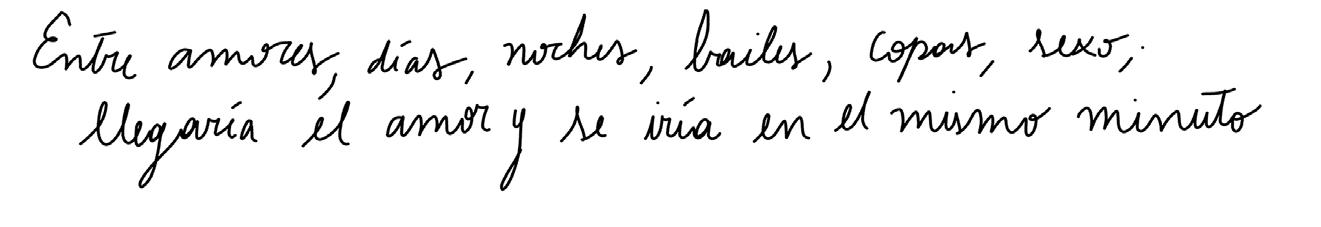 Entre amores, días, noches, bailes, copas, sexo;
llegaría el amor y se iría en el mismo minuto